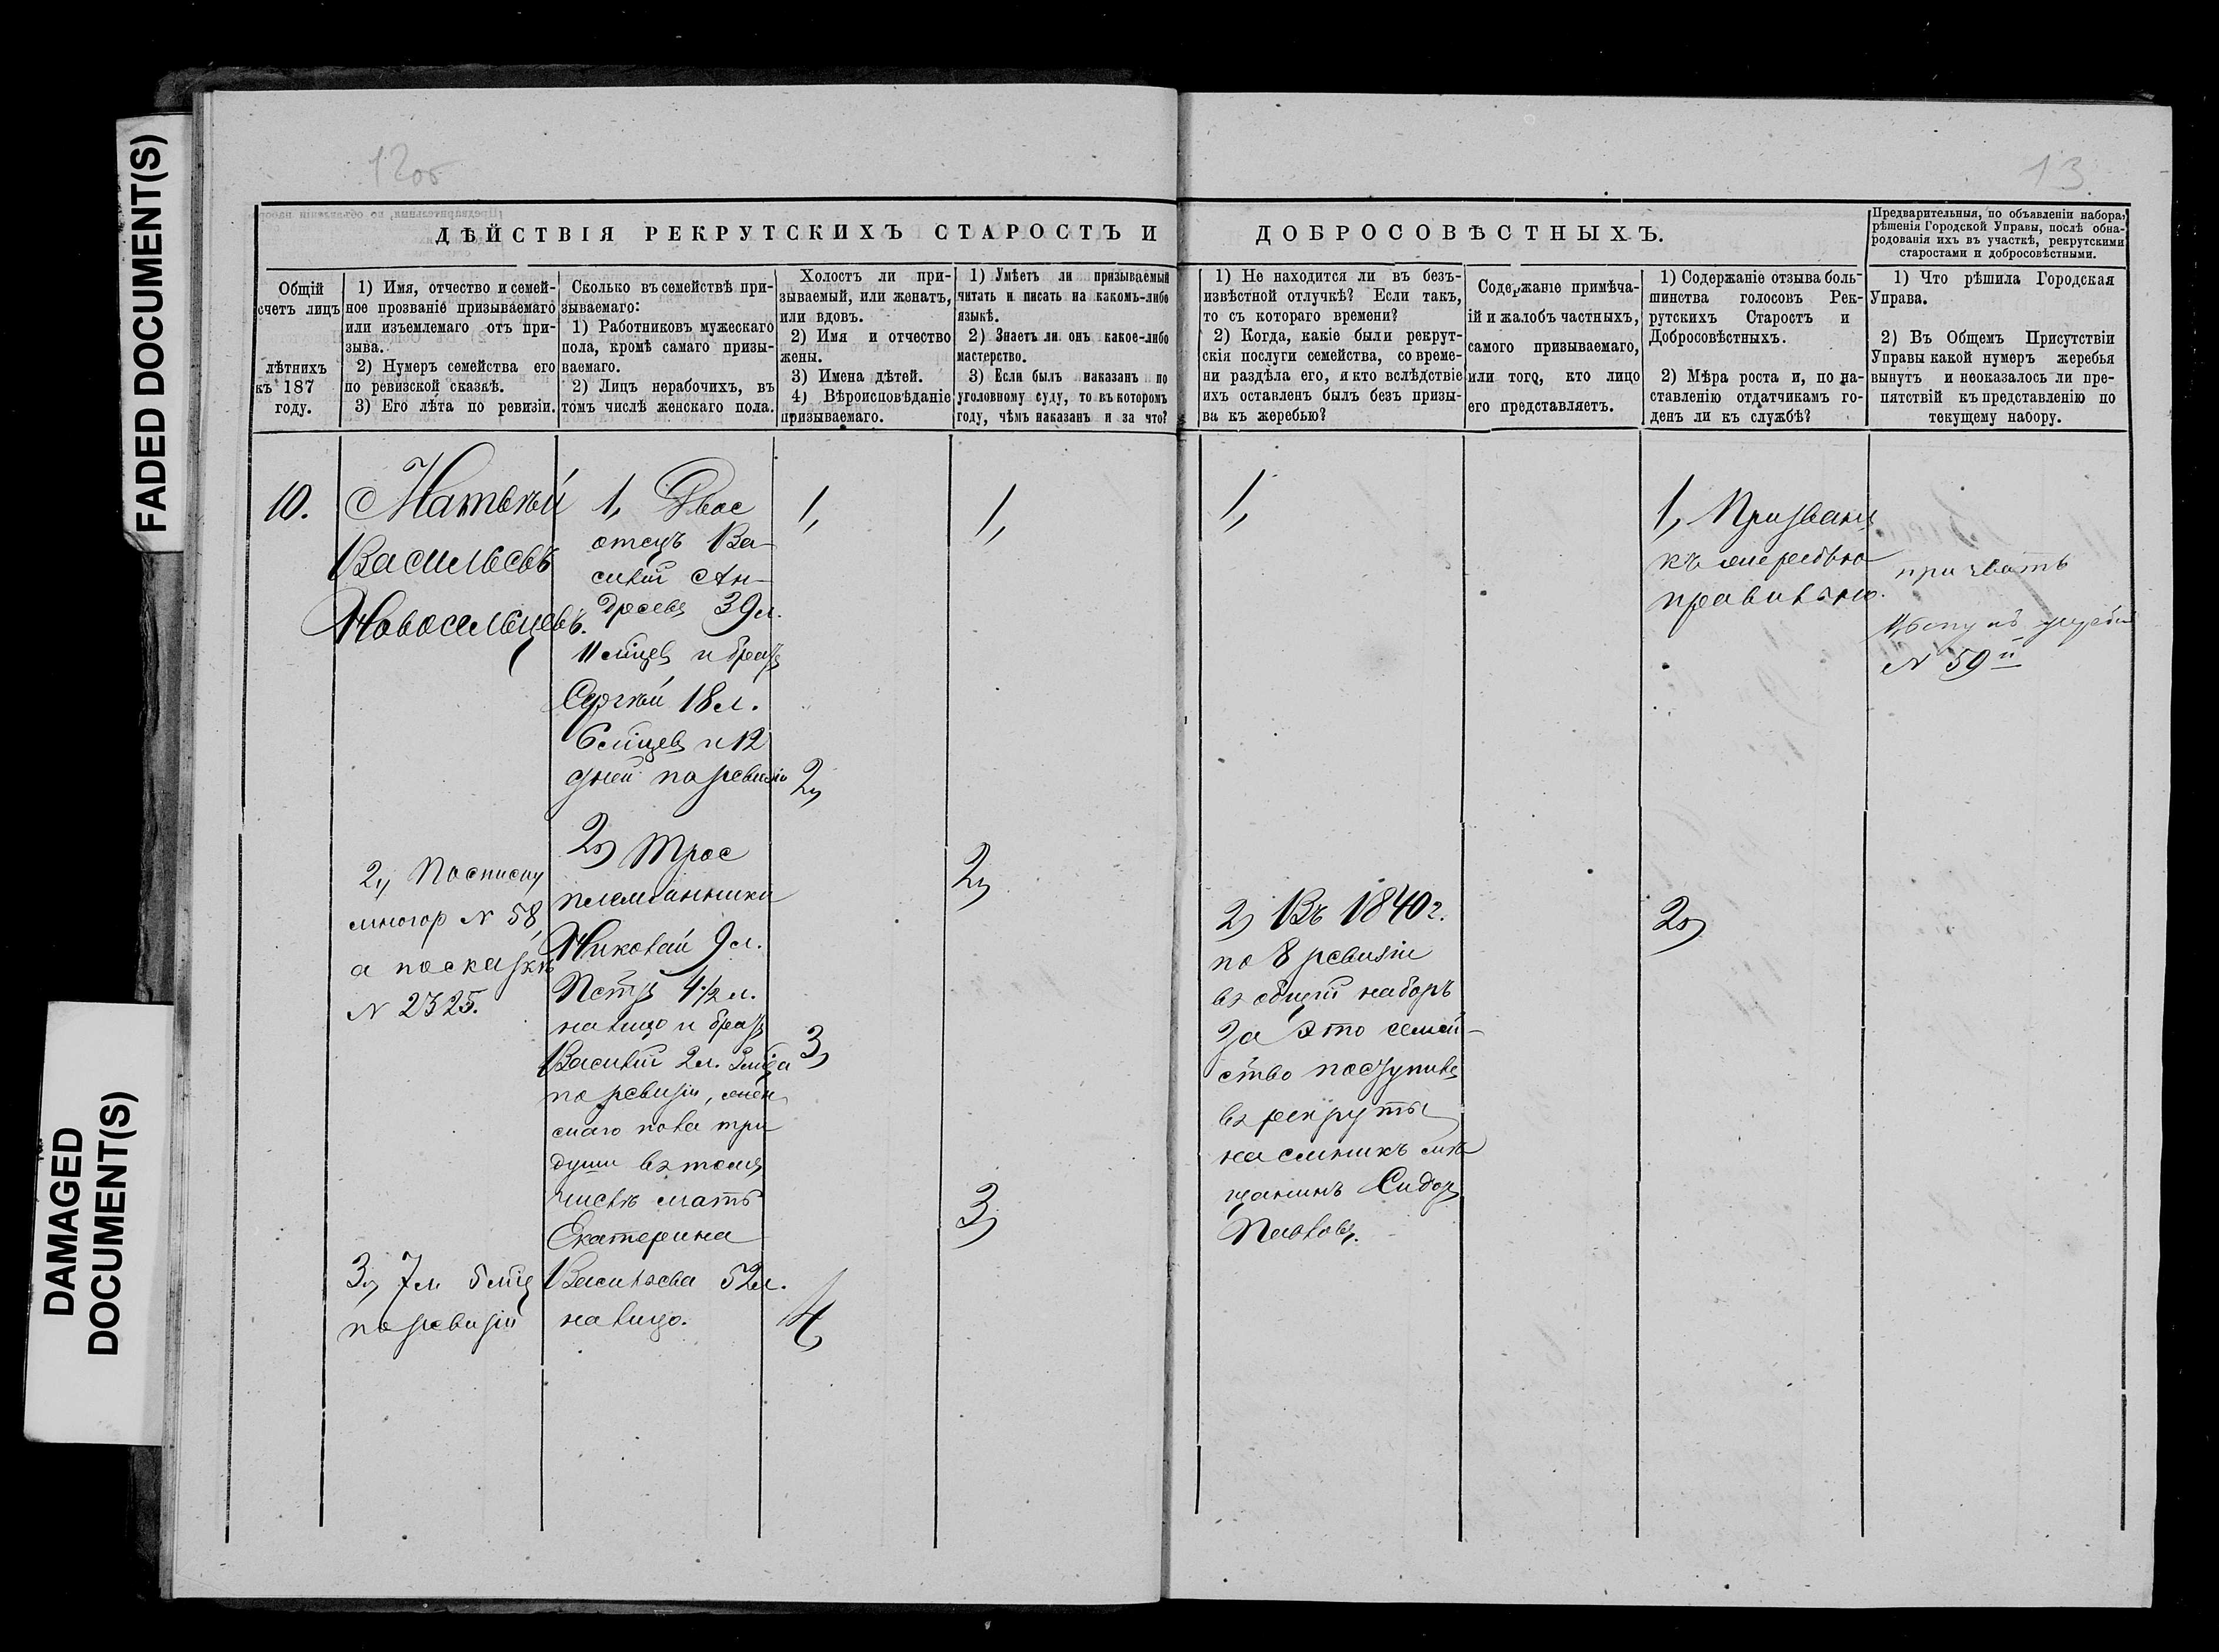 FADED DOCUMENT(S)
DAMAGED
DOCUMENT(S)
12об
13
ДѢЙСТВІЯ РЕКРУТСКИХЪ СТАРОСТЪ И ДОБРОСОВѢСТНЫХЪ.
Предварительныя, по объявленіи набора,
рѣшенія Городской Управы, послѣ обна-
родованія ихъ въ участкѣ, рекрутскими
старостами и добросовѣстными.
Общій
счетъ лицъ
лѣтнихъ
къ 187
году.
1) Имя, отчество и семей-
ное прозваніе призываемаго
или изъемлемаго отъ при-
зыва.
2) Нумеръ семейства его
по ревизской сказкѣ.
3) Его лѣта по ревизіи.
Сколько въ семействѣ при-
зываемаго:
1) Работниковъ мужескаго
пола, кромѣ самаго призы-
ваемаго.
2) Лицъ нерабочихъ, въ
томъ числѣ женскаго пола.
Холостъ ли при-
зываемый, или женатъ,
или вдовъ.
2) Имя и отчество
жены.
3) Имена дѣтей.
4) Вѣроисповѣданіе
призываемаго.
1) Умѣетъ ли призываемый
читать и писать на какомъ-либо
языкѣ.
2) Знаетъ ли онъ какое-либо
мастерство.
3) Если былъ наказанъ по
уголовному суду, то въ которомъ
году, чѣмъ наказанъ и за что?
1) Не находится ли въ безъ-
извѣстной отлучкѣ? Если такъ,
то съ котораго времени?
2) Когда, какіе были рекрут-
скія послуги семейства, со време-
ни раздѣла его, и кто вслѣдствіе
ихъ оставленъ былъ безъ призы-
ва къ жеребью?
Содержаніе примѣча-
ій и жалобъ частныхъ,
самого призываемаго,
или того, кто лицо
его представляетъ.
1) Содержаніе отзыва боль-
шинства голосовъ Рек-
рутскихъ Старостъ и
Добросовѣстныхъ.
2) Мѣра роста и, по на-
ставленію отдатчикамъ го-
денъ ли къ службѣ?
1) Что рѣшила Городская
Управа.
2) Въ Общемъ Присутствіи
Управы какой нумеръ жеребья
вынутъ и неоказалось ли пре-
пятствій къ представленію по
текущему набору.
10.
Матвѣй
Васильевъ
Новосельцевъ.
2, По списку
многор № 58,
а по сказкѣ
№ 2325.
3, 7 л 5 мѣц
по ревизіи
1, Двое
отецъ Ва-
силій Ан-
дреевъ 39 л.
11 мѣцев и братъ
Сергѣй 18 л.
6 мѣцев и 12
дней по ревизіи
2, Трое
племянники
Николай 9 л.
Петръ 4½ л.
на лицо и братъ
Василій 2 л.
по ревизіи, жен
скаго пола три
души въ томъ
числѣ мать
Екатерина
Васильева 52 л.
на лицо.
1,
2,
3,
4,
1,
2,
3,
1,
2, Въ 1840 г.
по 8 ревизіи
въ общій наборъ
за это семей-
ство поступилъ
въ рекруты
наемникъ мѣ-
щанинъ Сидоръ
Павловъ.
1, Призванъ
къ жеребью
правильно.
2,
призвать
№ 59й